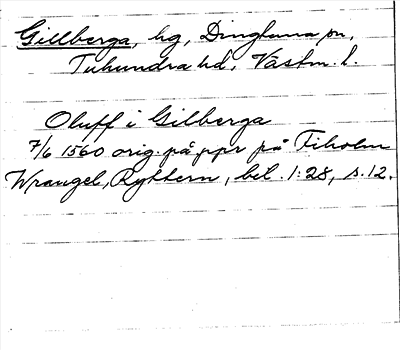 Gillberga, hg, Dingtuna sn,
Tuhundra hd, Västm. l.
Oluff i Gilberga
7/6 1560 orig. på ppr på Fiholm
Wrangel, Ryttern, bil. 1:28, s. 12.